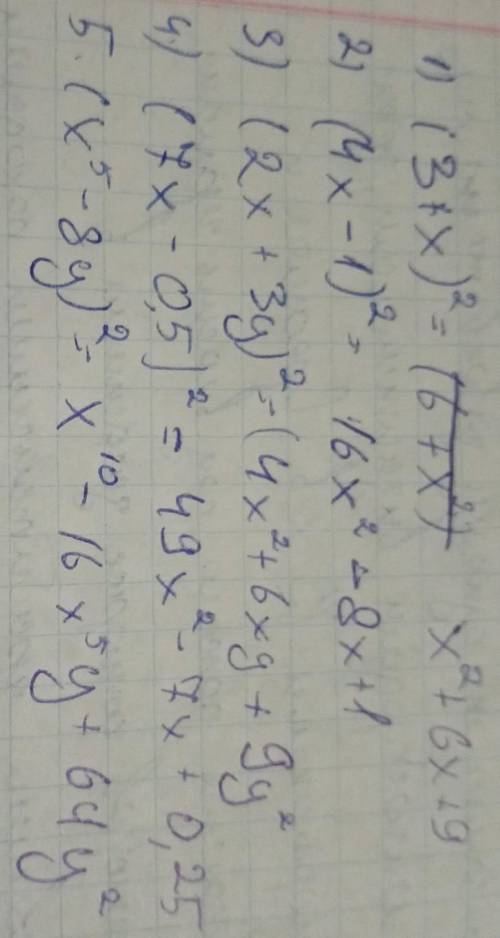 1) (3+x)² = (6+x²) x²+6x+9
2) (4x-1)² = 16x²-8x+1
3) (2x+3y)² = (4x²+6xy+9y²
4.) (7x-0,5)² = 49x²-7x+0,25
5. (x⁵-8y)² = x¹⁰-16x⁵y+64y²